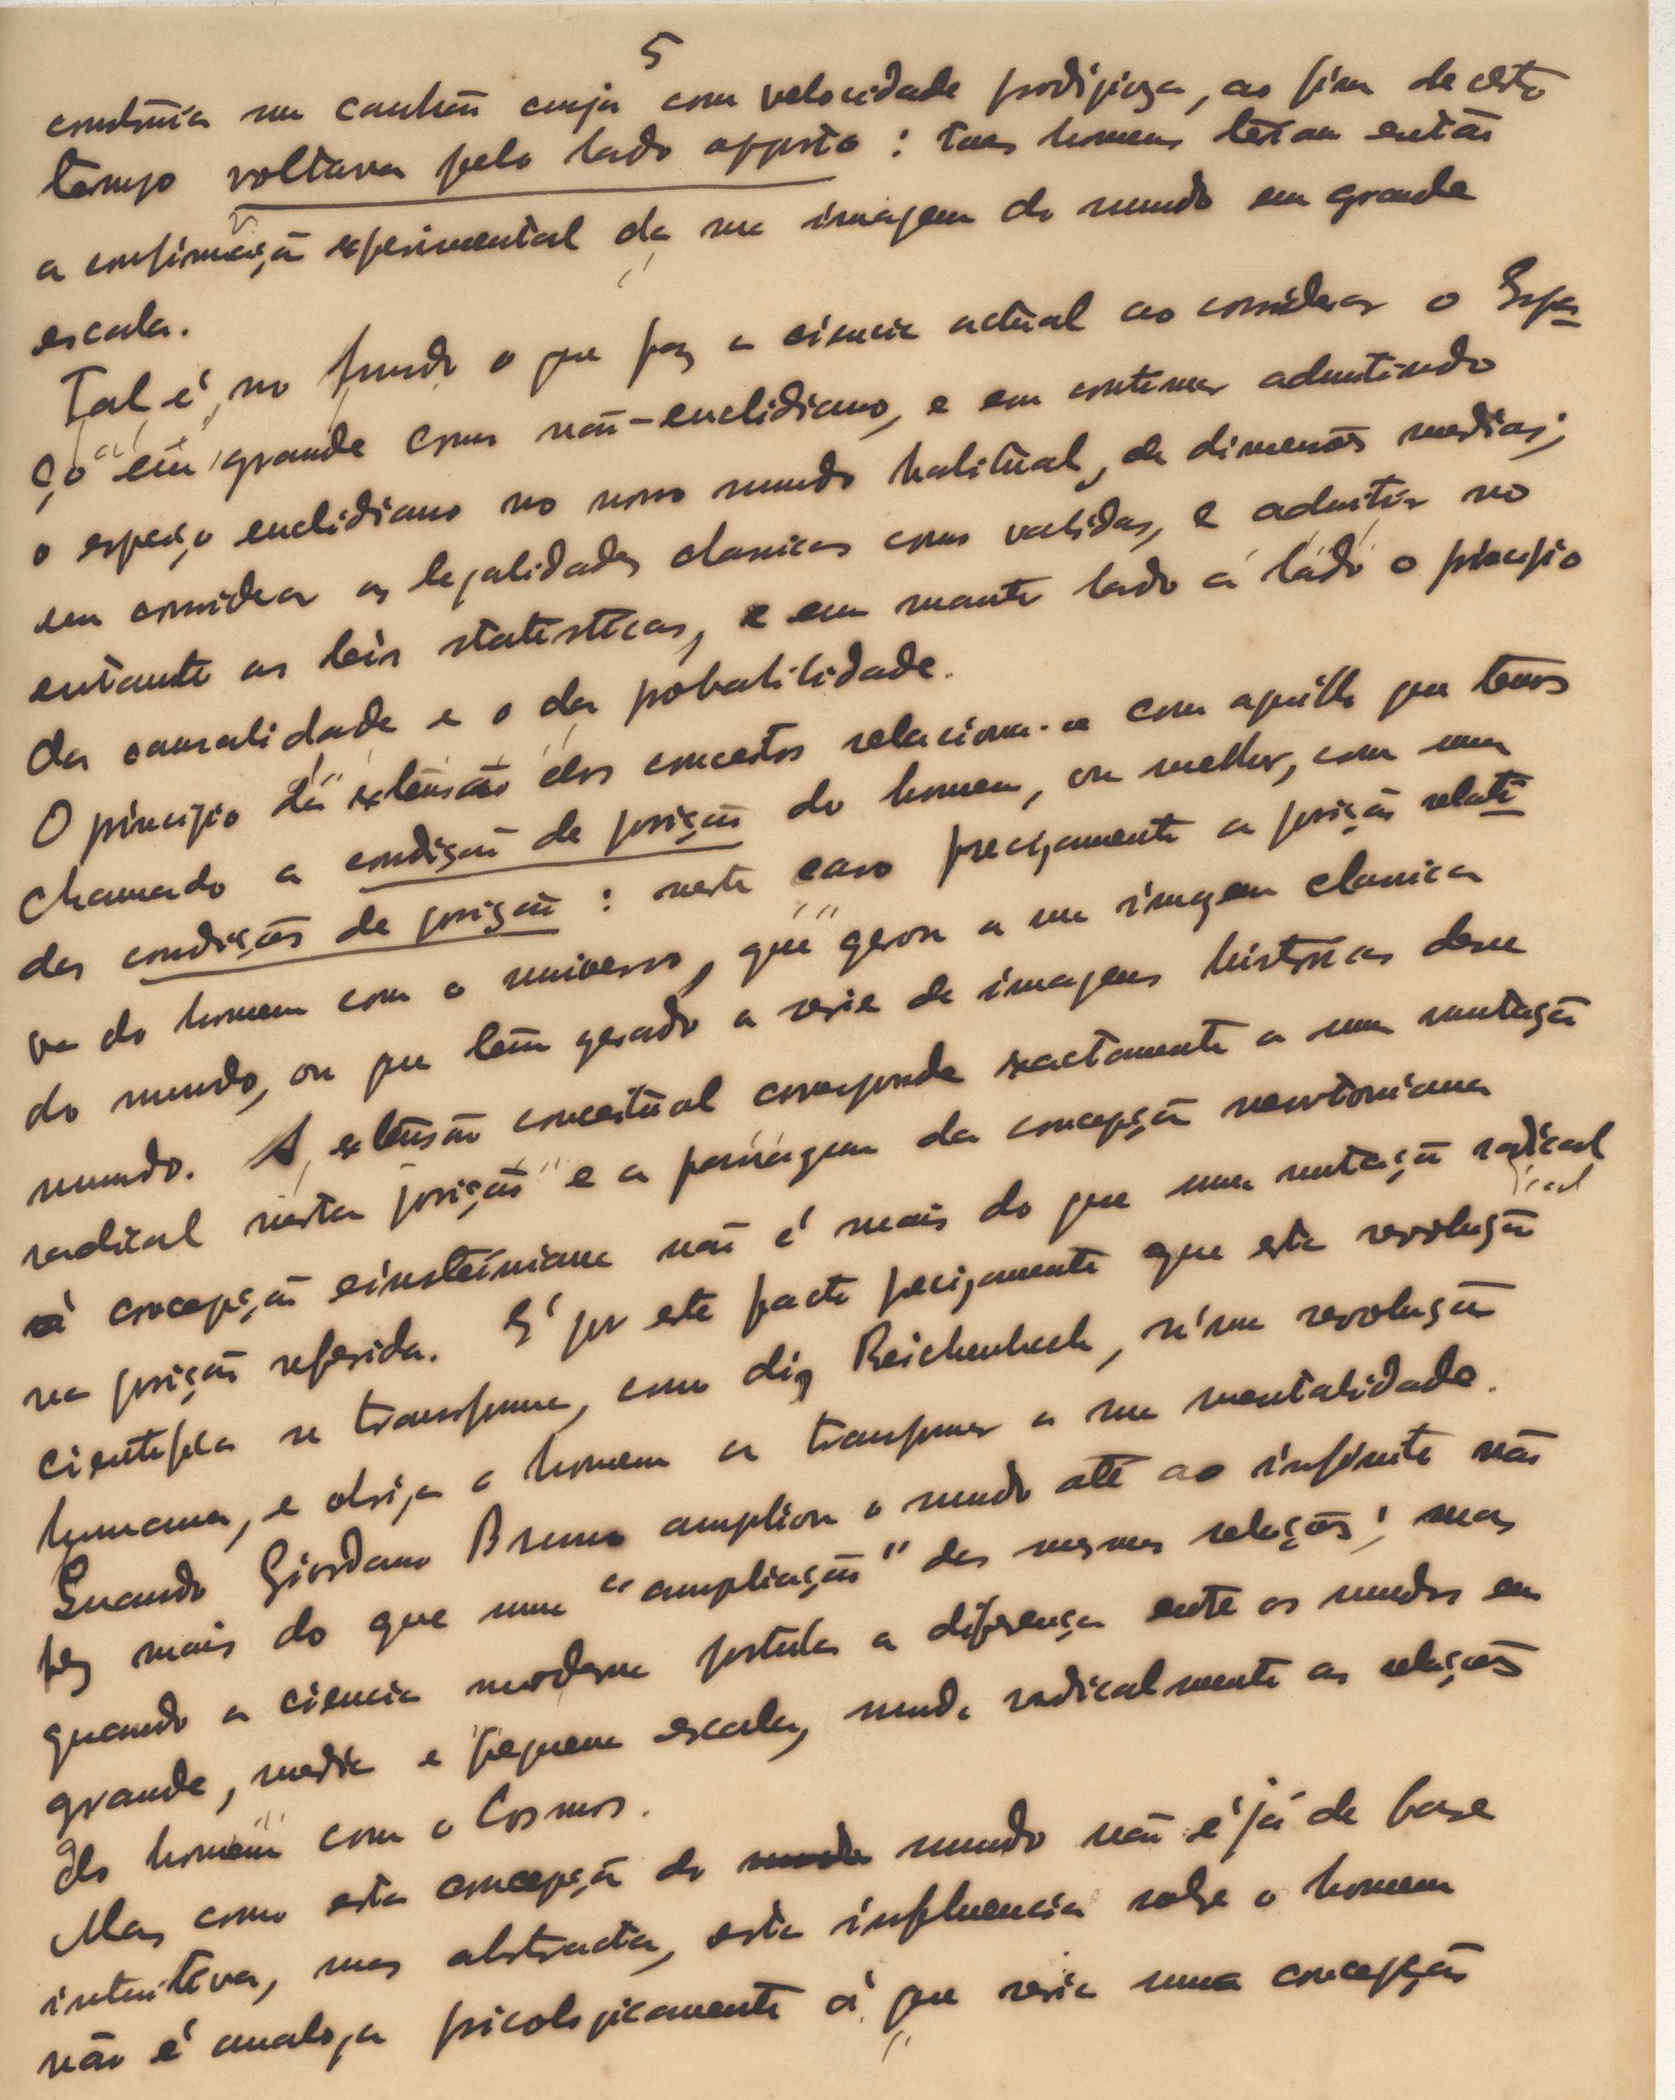 5
construia um canhão cuja com velocidade prodigioza, ao fim de certo
tempo voltava pelo lado opposto : taes homens teriam então
a confirmação experimental da sua imagem do mundo em grande
escala.
Tal é, no fundo o que faz a ciencia actual ao considerar o Espa-
ço em grande como não-euclidiano, e em continuar admitindo
o espaço euclidiano no nosso mundo habitual, de dimensões medias;
em considerar as legalidades classicas como validas, e admitir no
entanto as leis statisticas, e em manter lado a lado o principio
da causalidade e o da probabilidade.
O principio da extensão dos conceitos relaciona-se com aquillo que temos
chamado a condição de posição do homem, ou melhor, com uma
das condições de posição : neste caso precizamente a posição relati-
va do homem com o universo, que gerou a sua imagem classica
do mundo, ou que tem gerado a serie de imagens historicas desse
mundo. A extensão conceitual corresponde exactamente a uma mutação
radical nesta posição e a passagem da concepção newtoniana
á concepção einsteiniana não é mais do que uma mutação radical
na posição referida. É por este facto precizamente que esta revolução
cientifica se transforma, como diz Reichenbach, n'uma revolução
humana, e obriga o homem a transformar a sua mentalidade.
Quando Giordano Bruno ampliou o mundo até ao infinito não
fez mais do que uma "ampliação" das mesmas relações; mas
quando a ciencia moderna postula a diferença entre os mundos em
grande, media e pequena escala, muda radicalmente as relações
do homem com o Cosmos.
Mas como esta concepção do mundo não é já de base
intuitiva, mas abstracta, esta influencia sobre o homem
não é analoga psicologicamente á que seria uma concepção